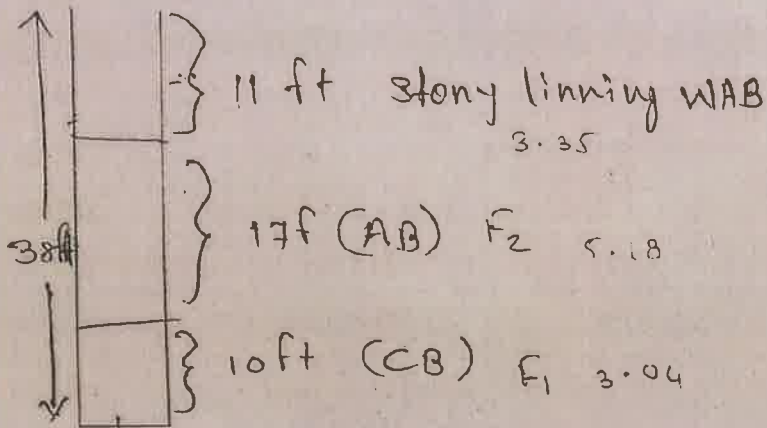 11 ft stony linning WAB
3.35
38ft
17f (AB) F2 5.18
10ft (CB) F1 3.04